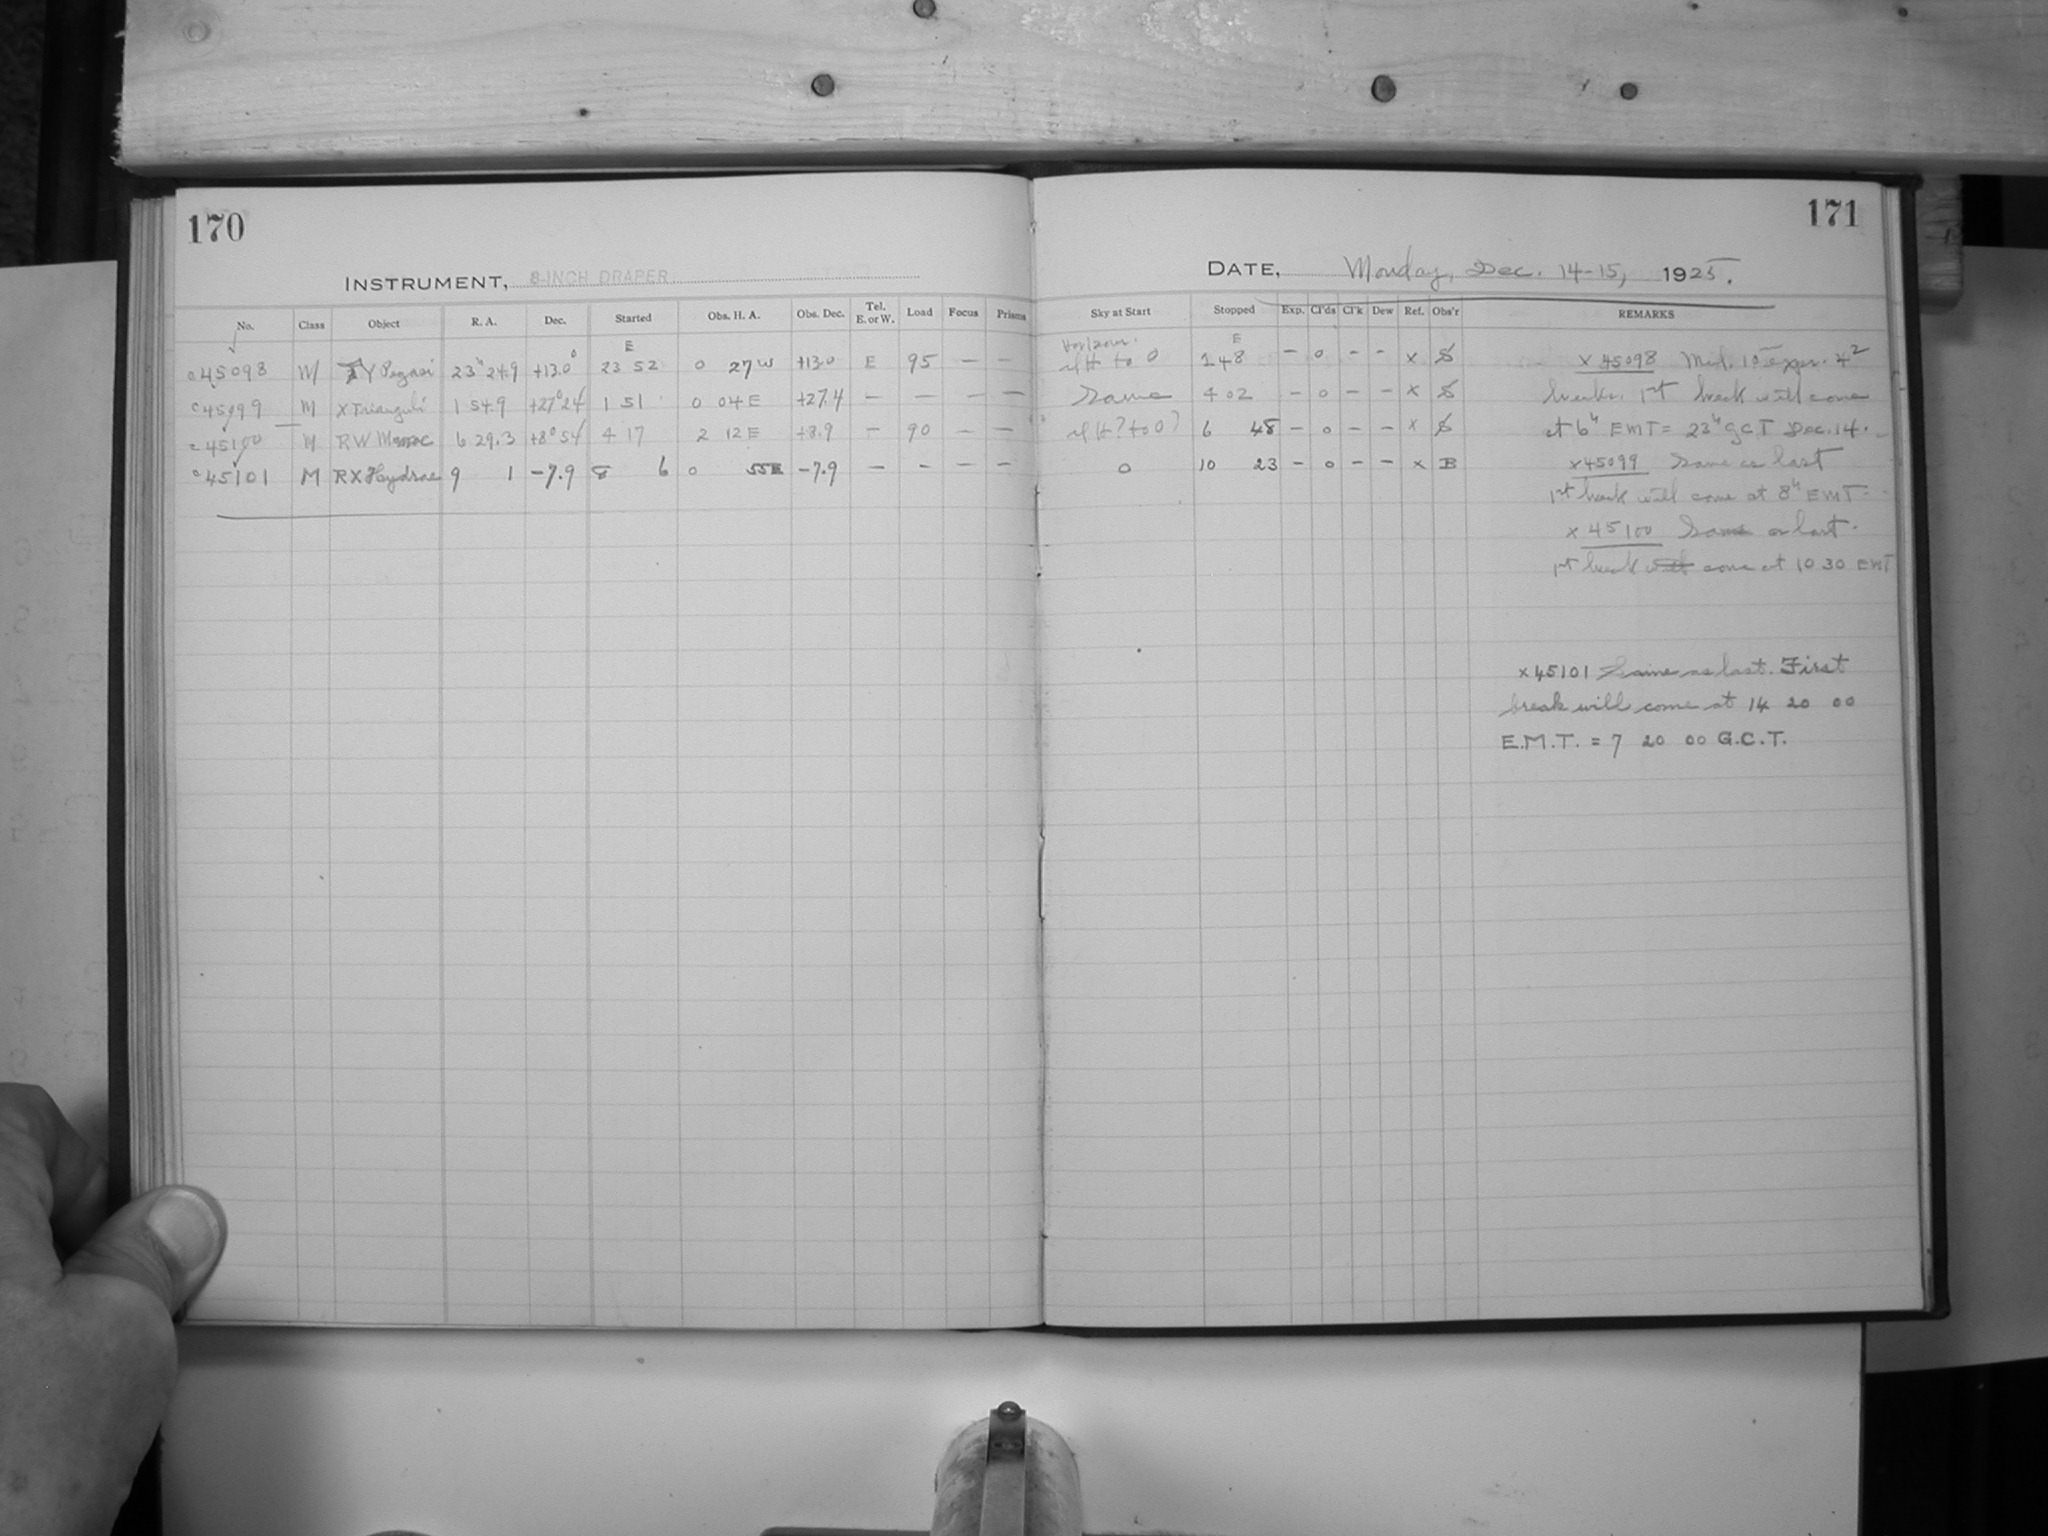 170
171
INSTRUMENT, 8-INCH DRAPER
DATE, Monday, Dec. 14-15, 1925.
No. Class Object R. A. Dec. Started Obs. H. A. Obs. Dec. Tel. E. or W. Load Focus Prisms Sky at Start Stopped Exp. Cl'ds Cl'k Dew Ref. Obs'r REMARKS
E E
c45098 M Y Pegasi 23h 24.9 +13.0° 23 52 0 27 W +13.0 E 95 — — to 0 1 48 – 0 – – x S
c45099 M X Trianguli 1 54.9 +27°24 1 51 0 04 E +27.4 — — — — Same 4 02 – 0 – – x S
c45100 M RW Monoc 6 29.3 +8°54 4 17 2 12 E +8.9 — 90 — — 6 48 – 0 – – x S
c45101 M RX Hydrae 9 1 –7.9 8 6 0 55 E –7.9 – – – – 0 10 23 – 0 – – x B
x 45098 Mid. 10m expr. 42
breaks. 1st break will come
at 6h EMT = 23h GCT Dec. 14.
x 45099 Same as last
1st break will come at 8h EMT =
x 45100 Same as last.
1st break will come at 10 30 EMT
x 45101 Same as last. First
break will come at 14 20 00
E.M.T. = 7 20 00 G.C.T.